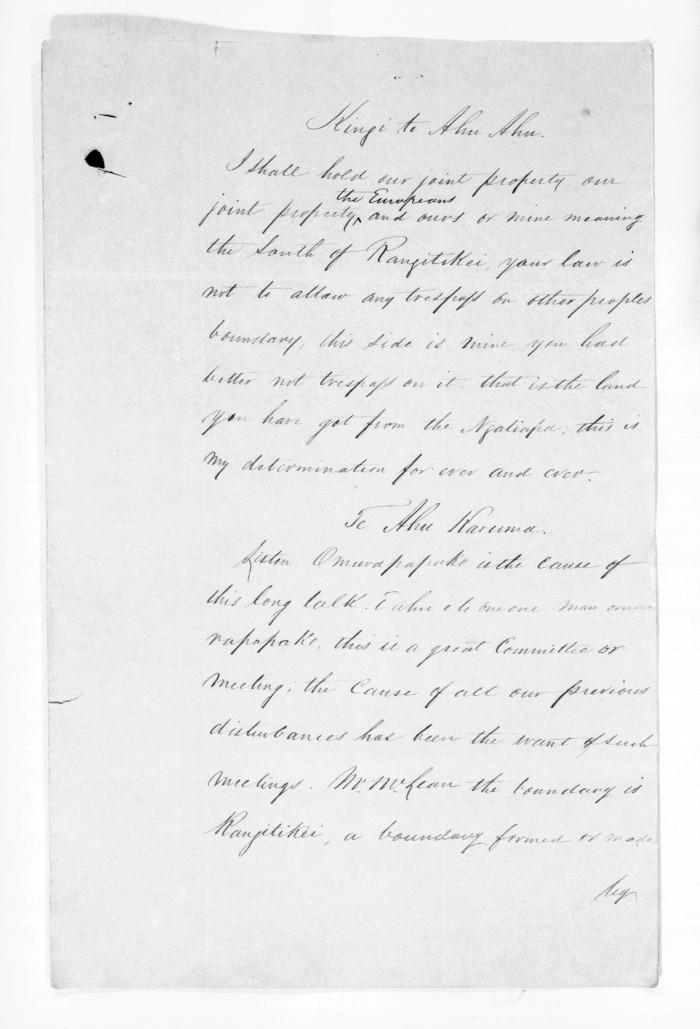 Kingi te Ahu Ahu.
I shall hold our joint property our
the Europeans
joint property, and ours or mine meaning
the South of Rangitikei, your law is
not to allow any trespass on other peoples
boundary, this side is mine you had
better not trespass on it. that is the land
you have got from the Ngatiapa; this is
my determination for ever and ever.
Te Ahu Karuma.
Listen. Omurapapake is the cause of
this long talk. one one man
rapapake, this is a great Committee or
meeting; the cause of all our previous
disturbances has been the want of such
meetings. Mr. McLean the boundary is
Rangitikei, a boundary formed or made
by